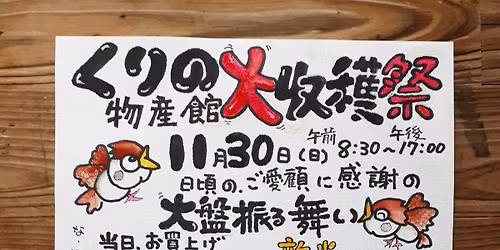 くりの大収穫祭
物産館
11月30日(日) 午前8:30~午後17:00
日頃の、ご愛顧に感謝の
大盤振る舞い
当日、お買上げ